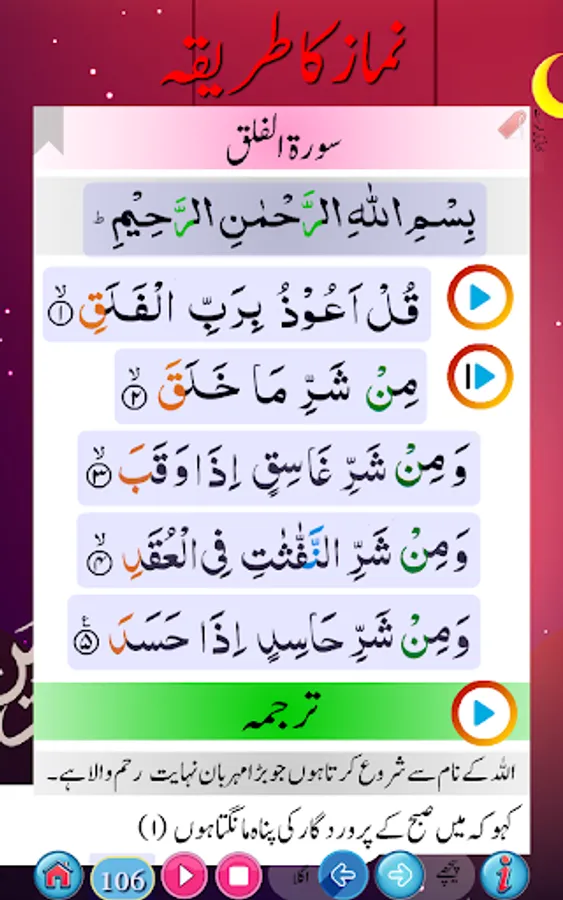 نماز کا طریقہ
سورة الفلق
بِسْمِ اللّٰهِ الرَّحْمٰنِ الرَّحِيْمِ ؕ
قُلْ اَعُوْذُ بِرَبِّ الْفَلَقِ ۙ‏﴿۱﴾
مِنْ شَرِّ مَا خَلَقَ ۙ‏﴿۲﴾
وَمِنْ شَرِّ غَاسِقٍ اِذَا وَقَبَ ۙ‏﴿۳﴾
وَمِنْ شَرِّ النَّفّٰثٰتِ فِى الْعُقَدِ ۙ‏﴿۴﴾
وَمِنْ شَرِّ حَاسِدٍ اِذَا حَسَدَ ﴿۵﴾
ترجمہ
اللہ کے نام سے شروع کرتا ہوں جو بڑا مہربان نہایت رحم والا ہے۔
کہو کہ میں صبح کے پروردگار کی پناہ مانگتا ہوں (۱)
106
اگلا
پیچھے